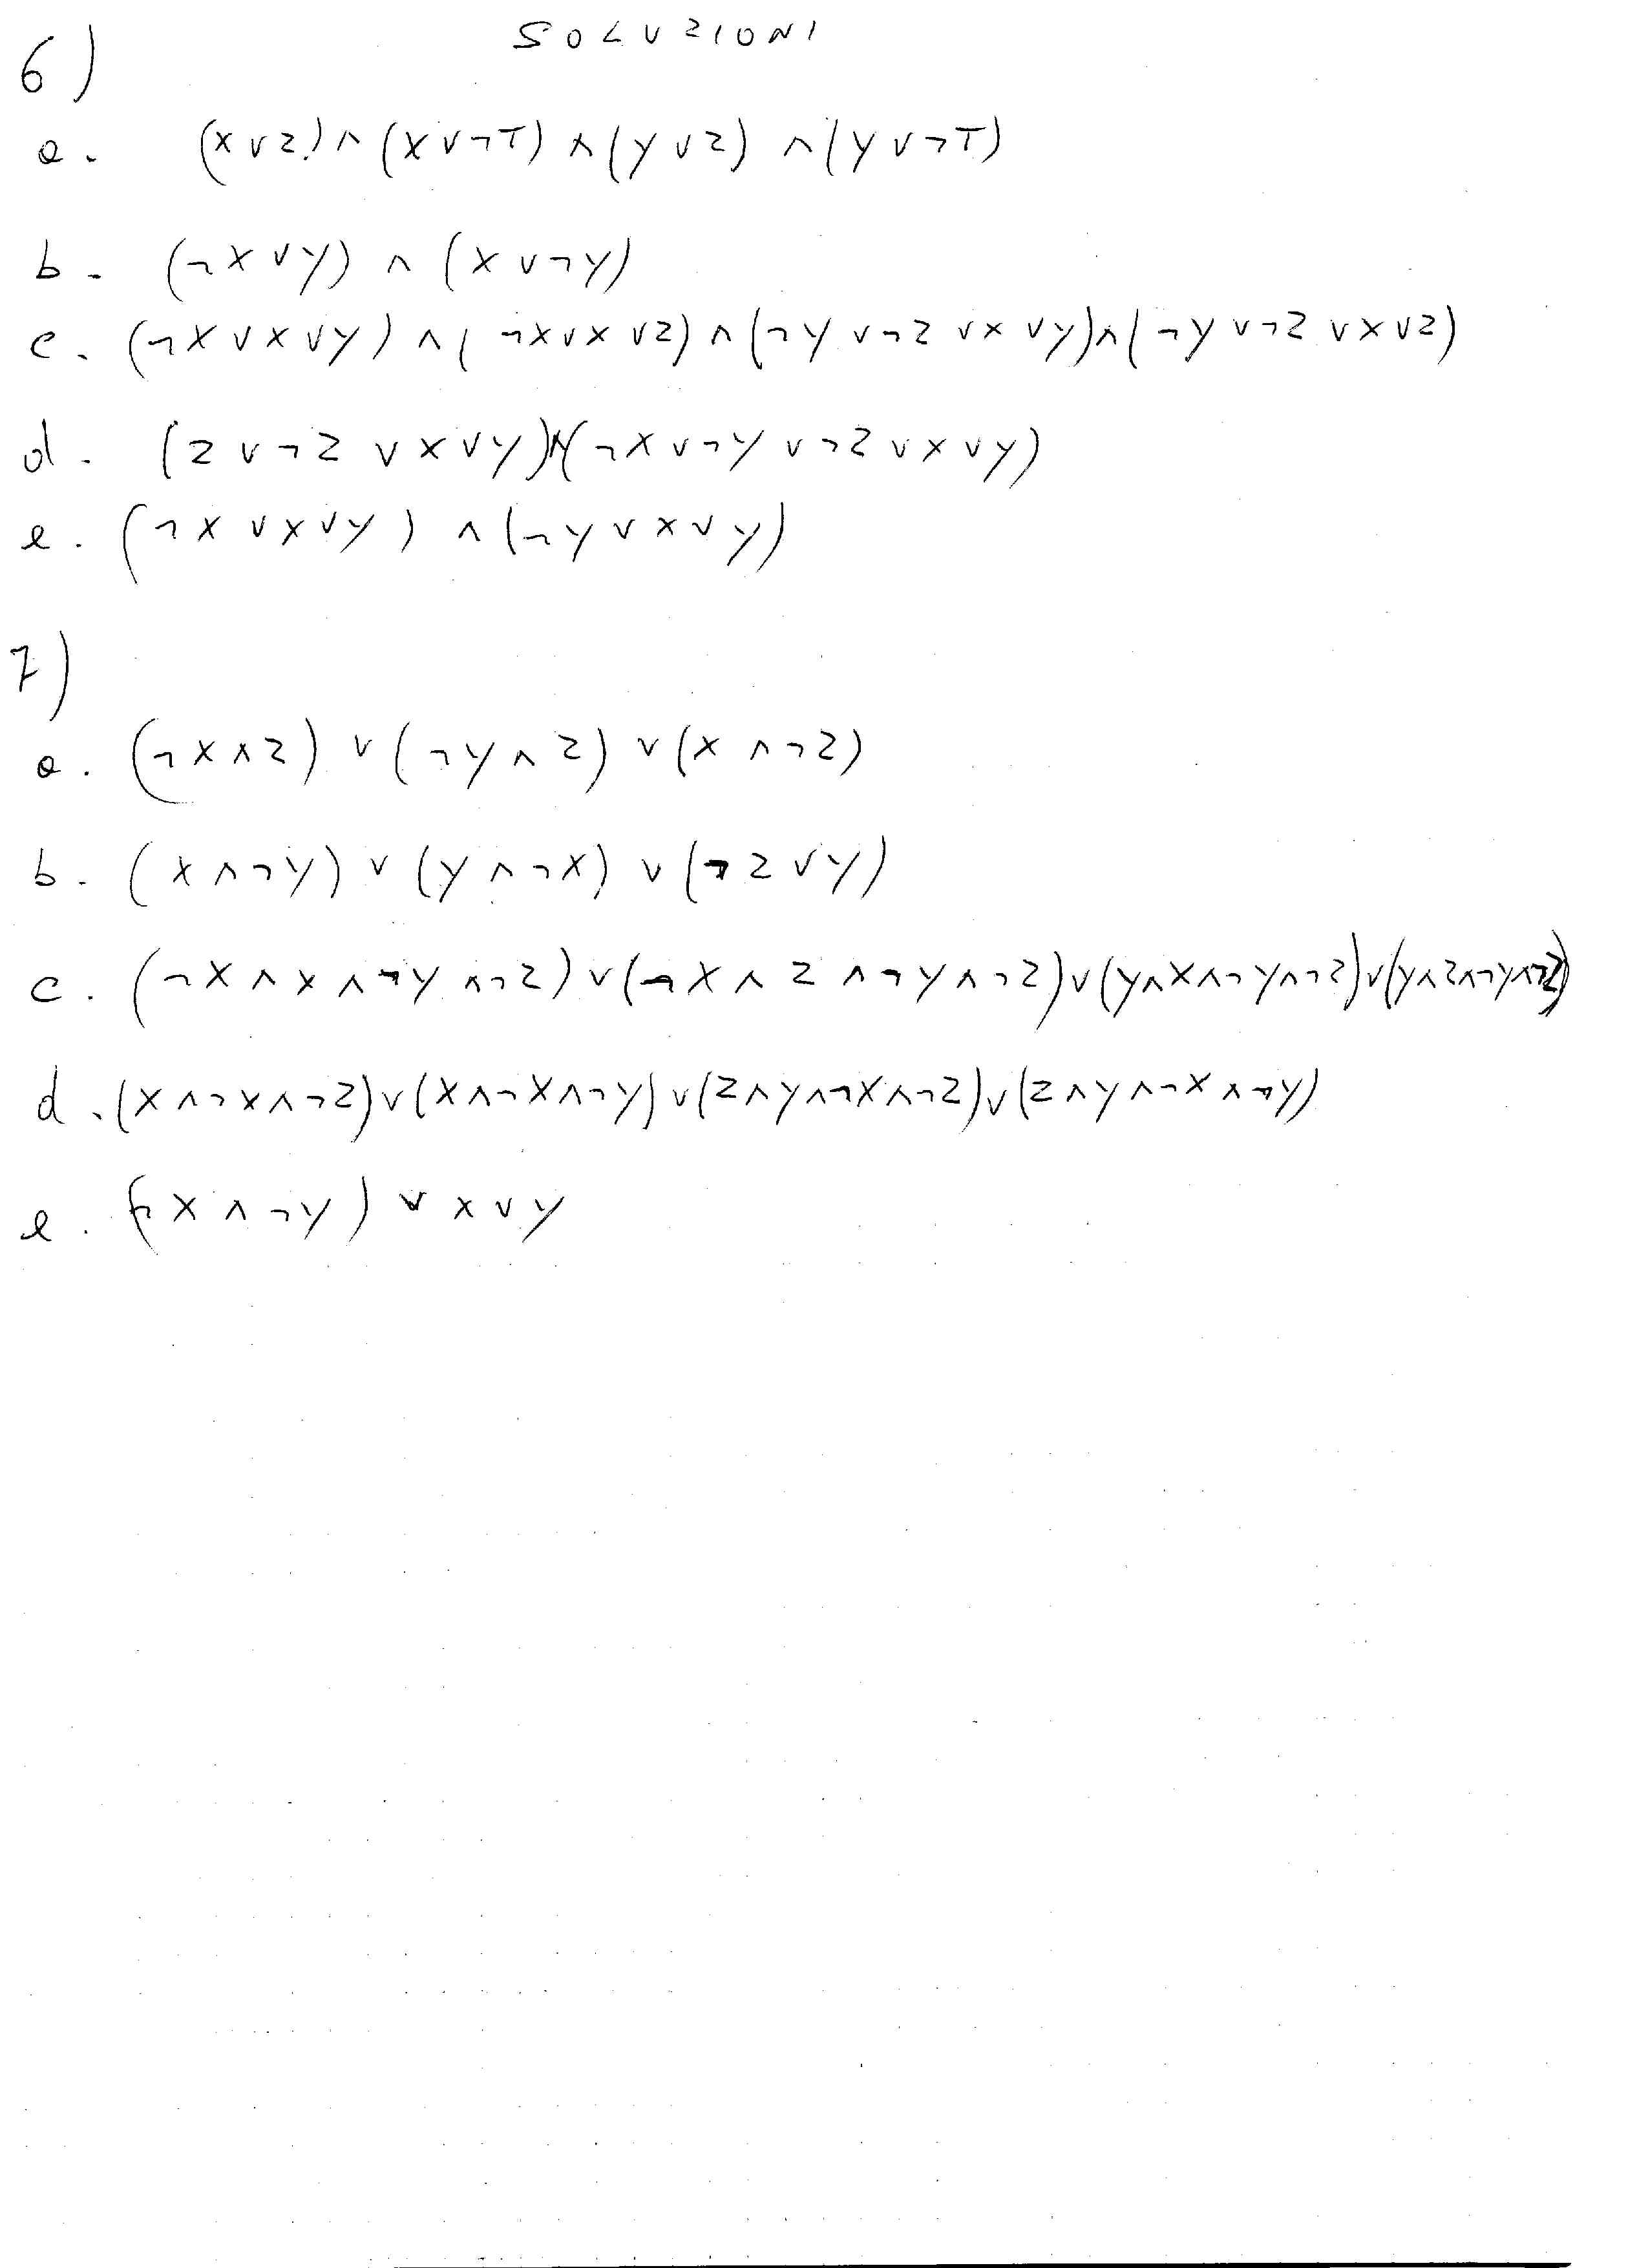 SOLUZIONI
6)
a. (x∨z)∧(x∨¬T)∧(y∨z)∧(y∨¬T)
b. (¬x∨y)∧(x∨¬y)
c. (¬x∨x∨y)∧(¬x∨x∨z)∧(¬y∨¬z∨x∨y)∧(¬y∨¬z∨x∨z)
d. (z∨¬z∨x∨y)∧(¬x∨¬y∨¬z∨x∨y)
e. (¬x∨x∨y)∧(¬y∨x∨y)
7)
a. (¬x∧z)∨(¬y∧z)∨(x∧¬z)
b. (x∧¬y)∨(y∧¬x)∨(¬z∨y)
c. (¬x∧x∧¬y∧¬z)∨(¬x∧z∧¬y∧¬z)∨(y∧x∧¬y∧¬z)∨(y∧z∧¬y∧¬z)
d. (x∧¬x∧¬z)∨(x∧¬x∧¬y)∨(z∧y∧¬x∧¬z)∨(z∧y∧¬x∧¬y)
e. (¬x∧¬y)∨x∨y